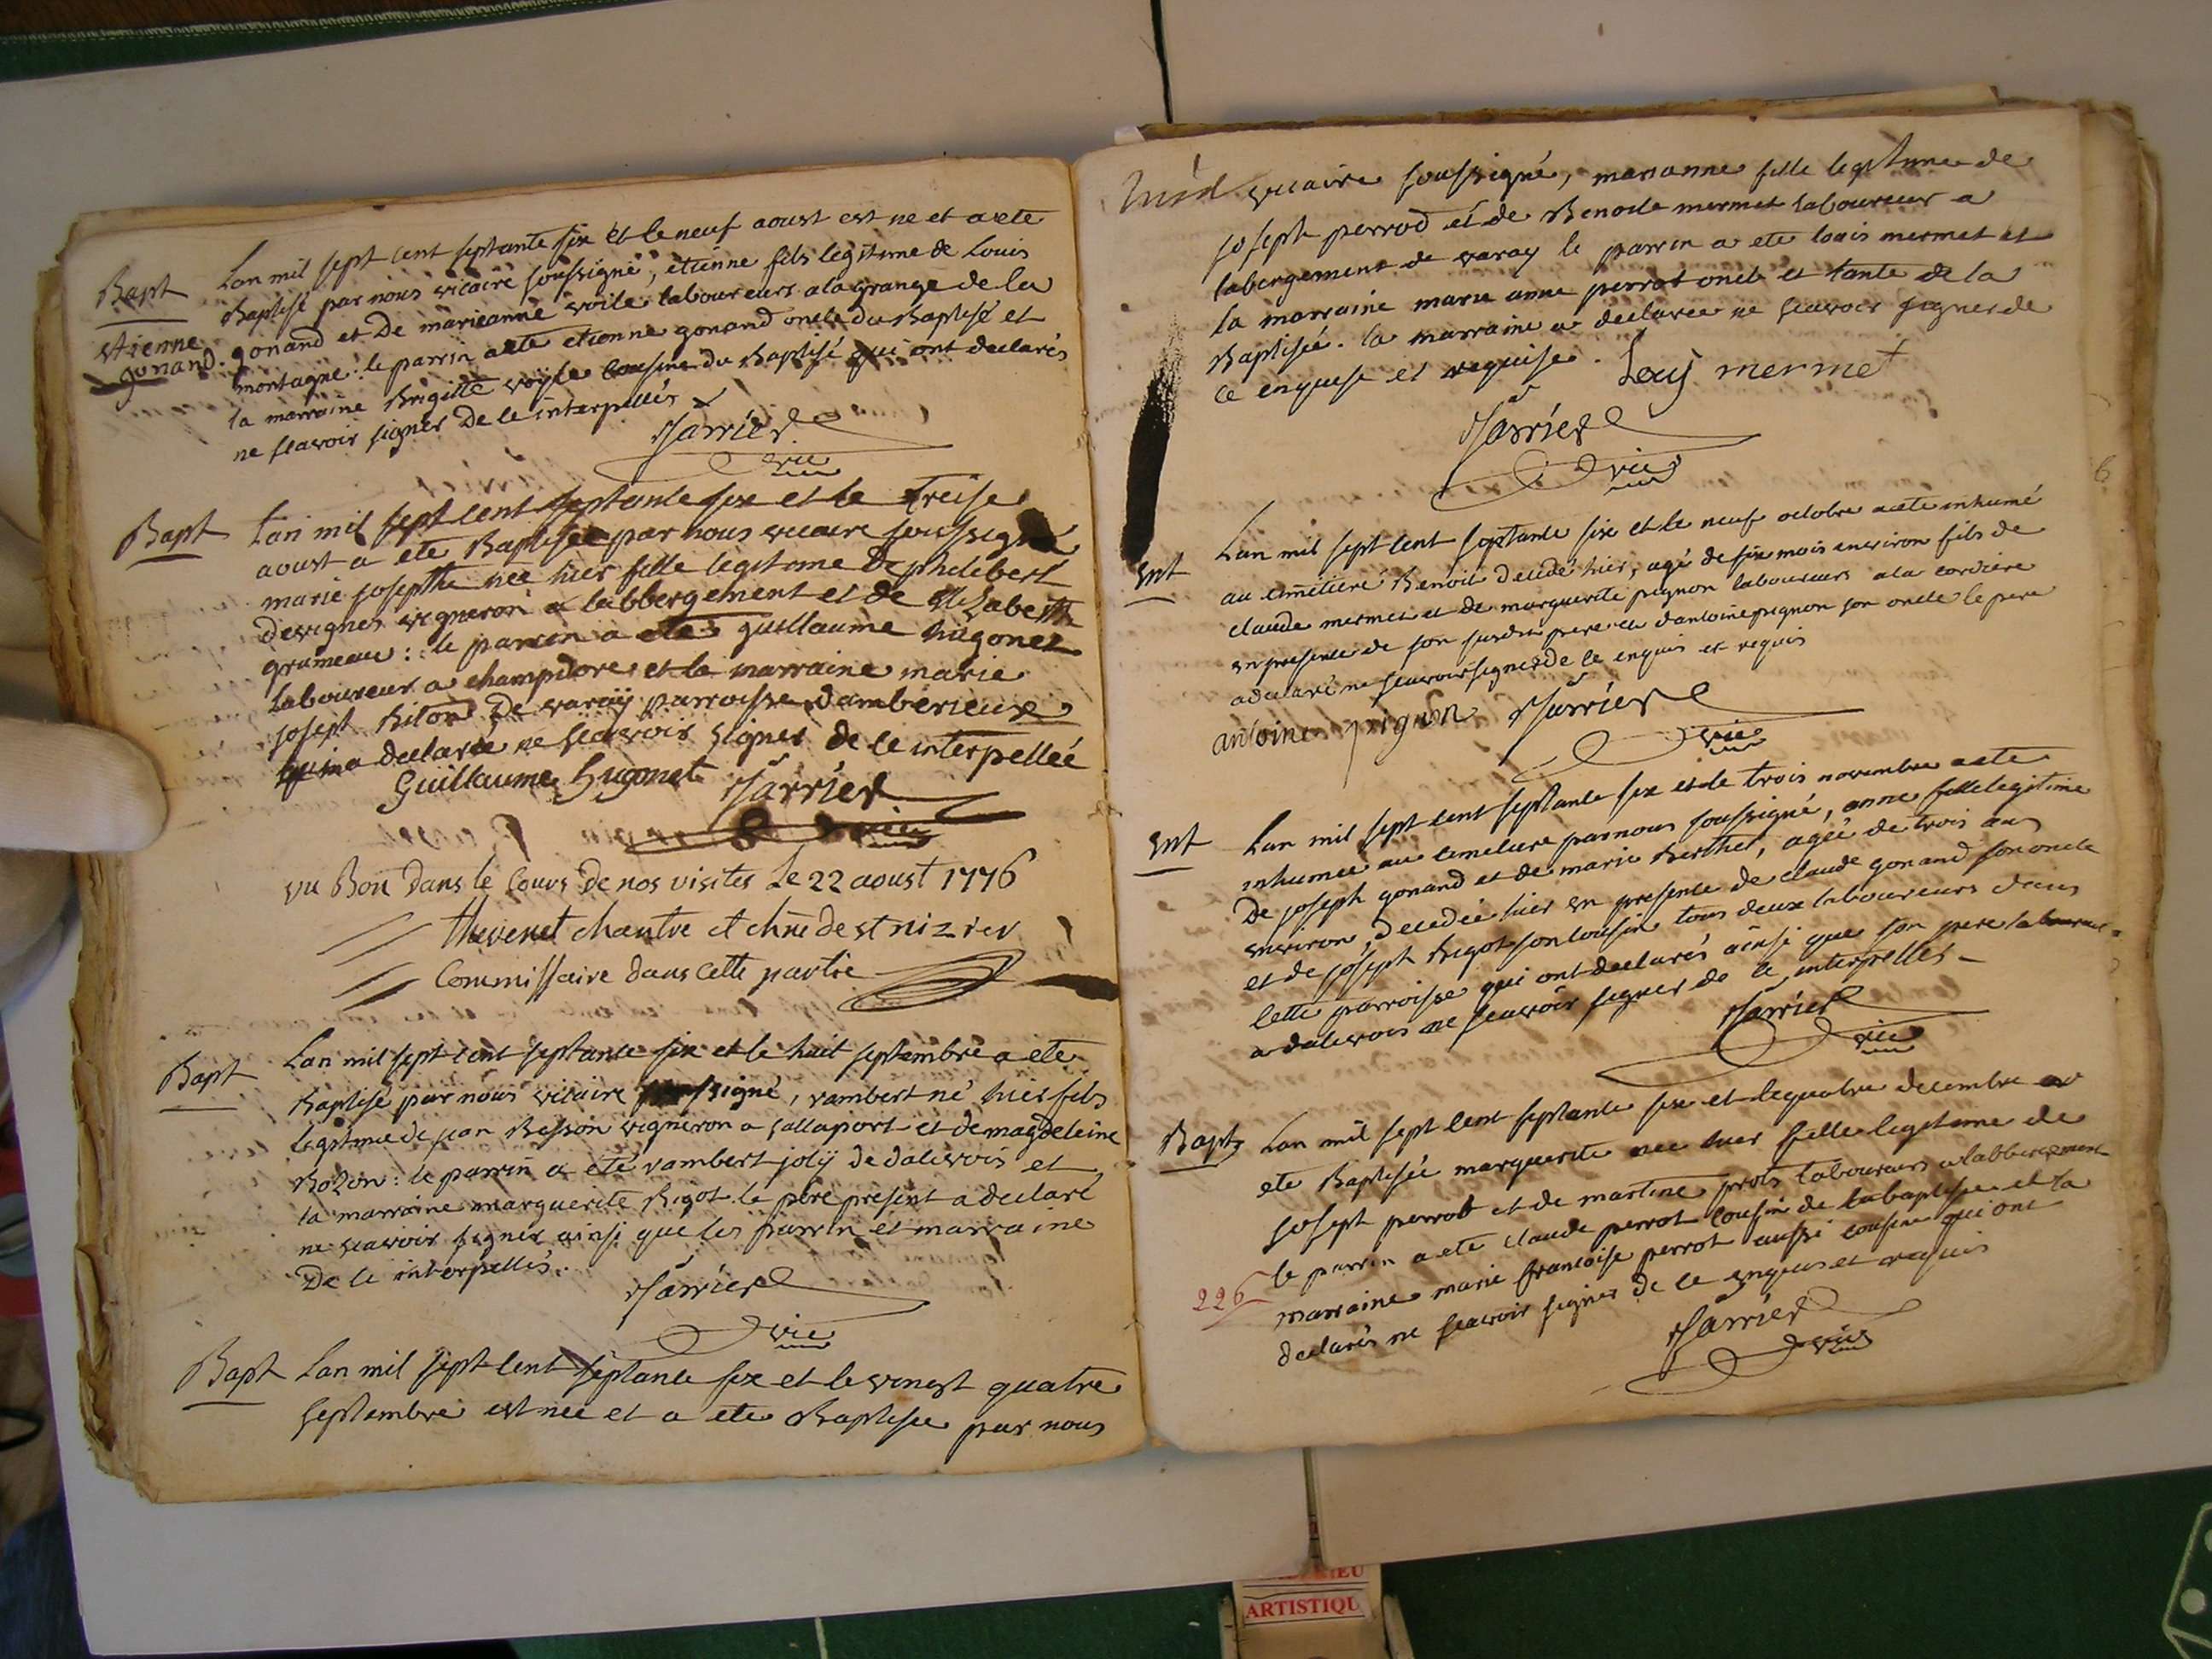 Bapt
etienne
gonand.
Lan mil sept cent septante six et le neuf aoust est ne et a ete
Baptisé par nous vicaire soussigné, etienne fils legitime de Louis
gonand et De marieanne voile laboureurs a la grange de la
montagne: le parrin a ete etienne gonand oncle du Baptisé et
la marraine Brigitte voyle cousine du Baptisé qui ont declarés
ne scavoir signer De ce interpellés
Jarrier
vic
Bapt
Lan mil sept cent septante six et le treise
aoust a ete Baptisée par nous vicaire soussigné
marie josephte née hier fille legitime De philibert
Devignes vigneron a labbergement et de Elizabeth
grumeau: le parrin a ete guillaume hugonet
laboureur a champdore et la marraine marie
joseph Biton De varay parroisse dambérieux
qui a declarée ne scavoir signer de ce interpellée
Guillaume hugonet Jarrier
vic
vu Bon dans le cours De nos visites Le 22 aoust 1776
thevenet chantre et chne de st nizier
Commissaire dans cette partie
Bapt
Lan mil sept cent septante six et le huit septembre a ete
Baptisé par nous vicaire soussigné, rambert né hier fils
legitime de jean Besson vigneron a sallaport et de magdeleine
Bozon: le parrin a été rambert joly de dalivois et
la marraine marguerite Bigot. le pere present a declaré
ne scavoir signer ainsi que les parrin et marraine
De ce interpellés.
Jarrier
vic
Bapt
Lan mil sept cent septante six et le vingt quatre
septembre est née et a ete Baptisée par nous
vicaire soussigné, marianne fille legitime de
joseph perrod et de Benoite mermet laboureur a
labergement de varay le parrin a ete louis mermet et
la marraine marie anne perrot oncle et tante de la
Baptisée. la marraine a declarée ne scavoir signer de
ce enquise et requise. Louy mermet
Jarrier
vic
6
Ent
Lan mil sept cent septante six et le neuf octobre a ete inhumé
au cimetiere Benoit decédé hier, agé de six mois environ fils de
claude mermet et de marguerite pignon laboureurs a la cordiere
en presence de son susdit pere et dantoine pignon son oncle le pere
a declaré ne scavoir signer de ce enquis et requis
antoine pignon Jarrier
vic
Ent
Lan mil sept cent septante six et le trois novembre a ete
inhumée au cimetiere par nous soussigné, anne fille legitime
De joseph gonand et de marie Berthet, agée de trois ans
environ, decedée hier en presence de claude gonand son oncle
et de joseph Bigot son cousin tous deux laboureurs dans
cette parroisse qui ont declarés ainsi que son pere laboureur
a dalivois ne scavoir signer de ce interpellés
Jarrier
vic
Bapt
Lan mil sept cent septante six et le quatre decembre a
ete Baptisée marguerite née hier fille legitime de
joseph perrot et de martine prots laboureurs a labbergement
le parrin a ete claude perrot cousin de la baptisée et la
marraine marie francoise perrot aussi cousine qui ont
declarés ne scavoir signer de ce enquis et requis
226
Jarrier
vic
ARTISTIQU